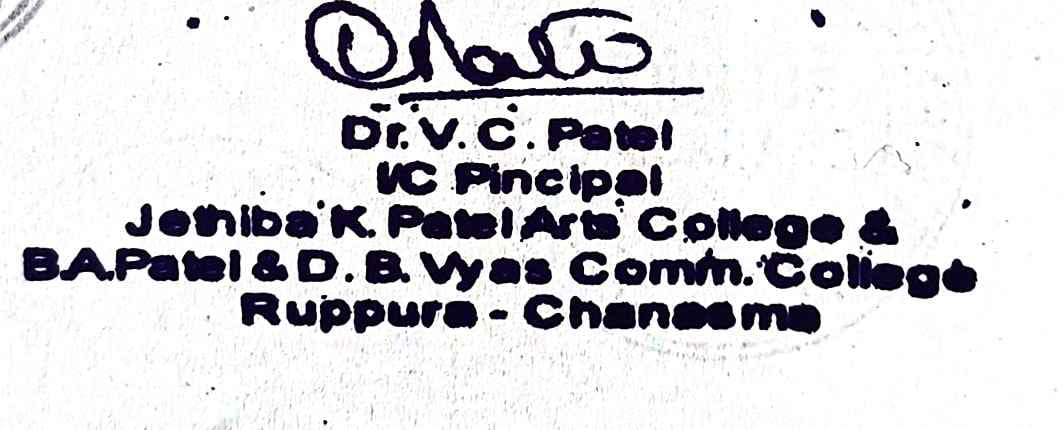 Dr. V. C. Patel
I/C Pincipal
Jethiba K. Patel Arts College &
B.A.Patel & D. B. Vyas Comm. College
Ruppura - Chanasma